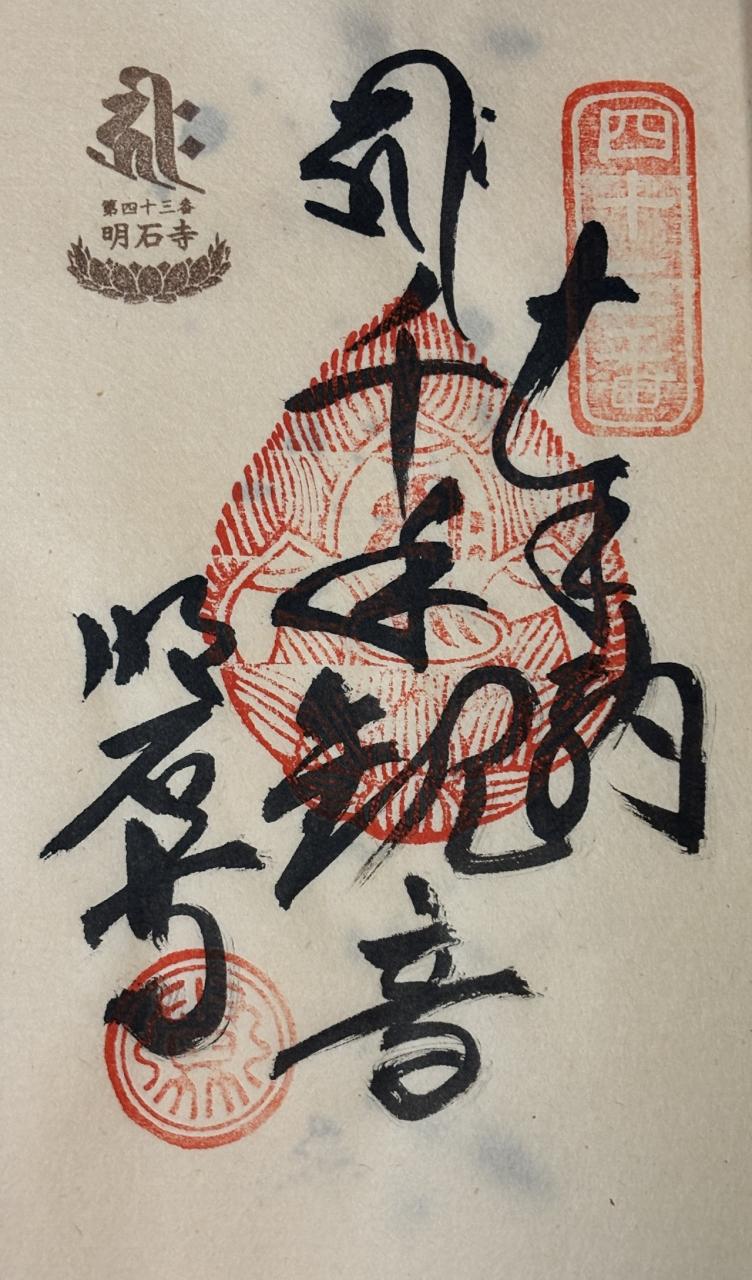 四十三番
奉納
千手観音
第四十三番
明石寺
明石寺